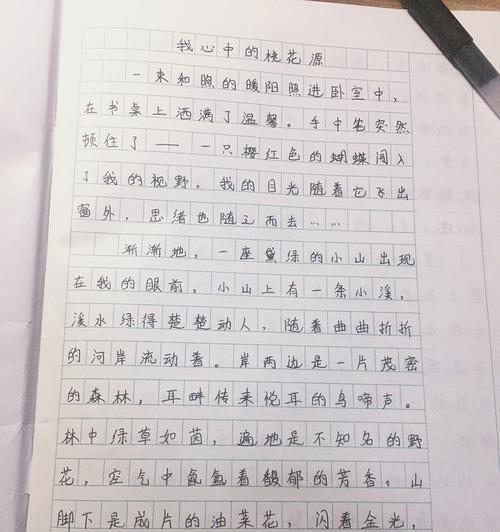 我心中的桃花源
一束和煦的暖阳照进卧室中，
在书桌上洒满了温馨。手中笔突然
顿住了——一只樱红色的蝴蝶闯入
了我的视野。我的目光随着它飞出
窗外，思绪也随之而去……
渐渐地，一座黛绿的小山出现
在我的眼前。小山上有一条小溪，
溪水绿得楚楚动人，随着曲曲折折
的河岸流动着。岸两边是一片茂密
的森林，耳畔传来悦耳的鸟啼声。
林中绿草如茵，遍地是不知名的野
花，空气中氤氲着馥郁的芳香。山
脚下是成片的油菜花，闪着金光，